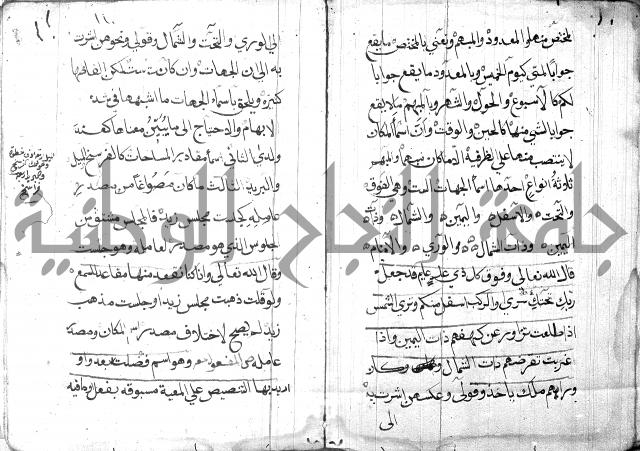 المختص منها والمعدود والمبهم ونعني بالمختص ما يقع
جوابا لمتى كيوم الخميس وبالمعدود ما يقع جوابا
لكم كالاسبوع والحول والشهر وبالمبهم ما لا يقع
جوابا لشي منهما كالحين والوقت وان اسماء المكان
لا ينتصب منها على الظرفية الا ما كان مبهما والمبهم
ثلاثة انواع احدها اسماء الجهات الست وهي الفوق
والتحت والاسفل واليمين والشمال وذات
اليمين وذات الشمال والوري والامام
قال الله تعالى وفوق كل ذي علم عليم قد جعل
ربك تحتك سريا والركب اسفل منكم وترى الشمس
اذا طلعت تزاور عن كهفهم ذات اليمين واذا
غربت تقرضهم ذات الشمال وكان
وراءهم ملك ياخذ وقولي وعكسهن اشرت به
الى
الى الوري والتحت والشمال وقولي ونحوهن اشرت
به الى ان الجهات وان كانت ستا لكن الفاظها
كثيرة ويلحق باسماء الجهات ما اشبهها في شدة
الابهام والاحتياج الى ما يبين معناها كعند
ولدى الثاني اسماء مقادير المساحات كالفرسخ والميل
والبريد الثالث ما كان مصوغا من مصدر
عامله كجلست مجلس زيد فالمجلس مشتق من
الجلوس الذي هو مصدر لعامله وهو جلست
وقال الله تعالى وانا كنا نقعد منها مقاعد للسمع
ولو قلت ذهبت مجلس زيد او جلست مذهب
زيد لم يصح لاختلاف مصدر اسم المكان ومصدر
عامله ص والمفعول معه وهو اسم فضلة بعد واو
اريد بها التنصيص على المعية مسبوقة بفعل او ما فيه
جامعة النجاح الوطنية